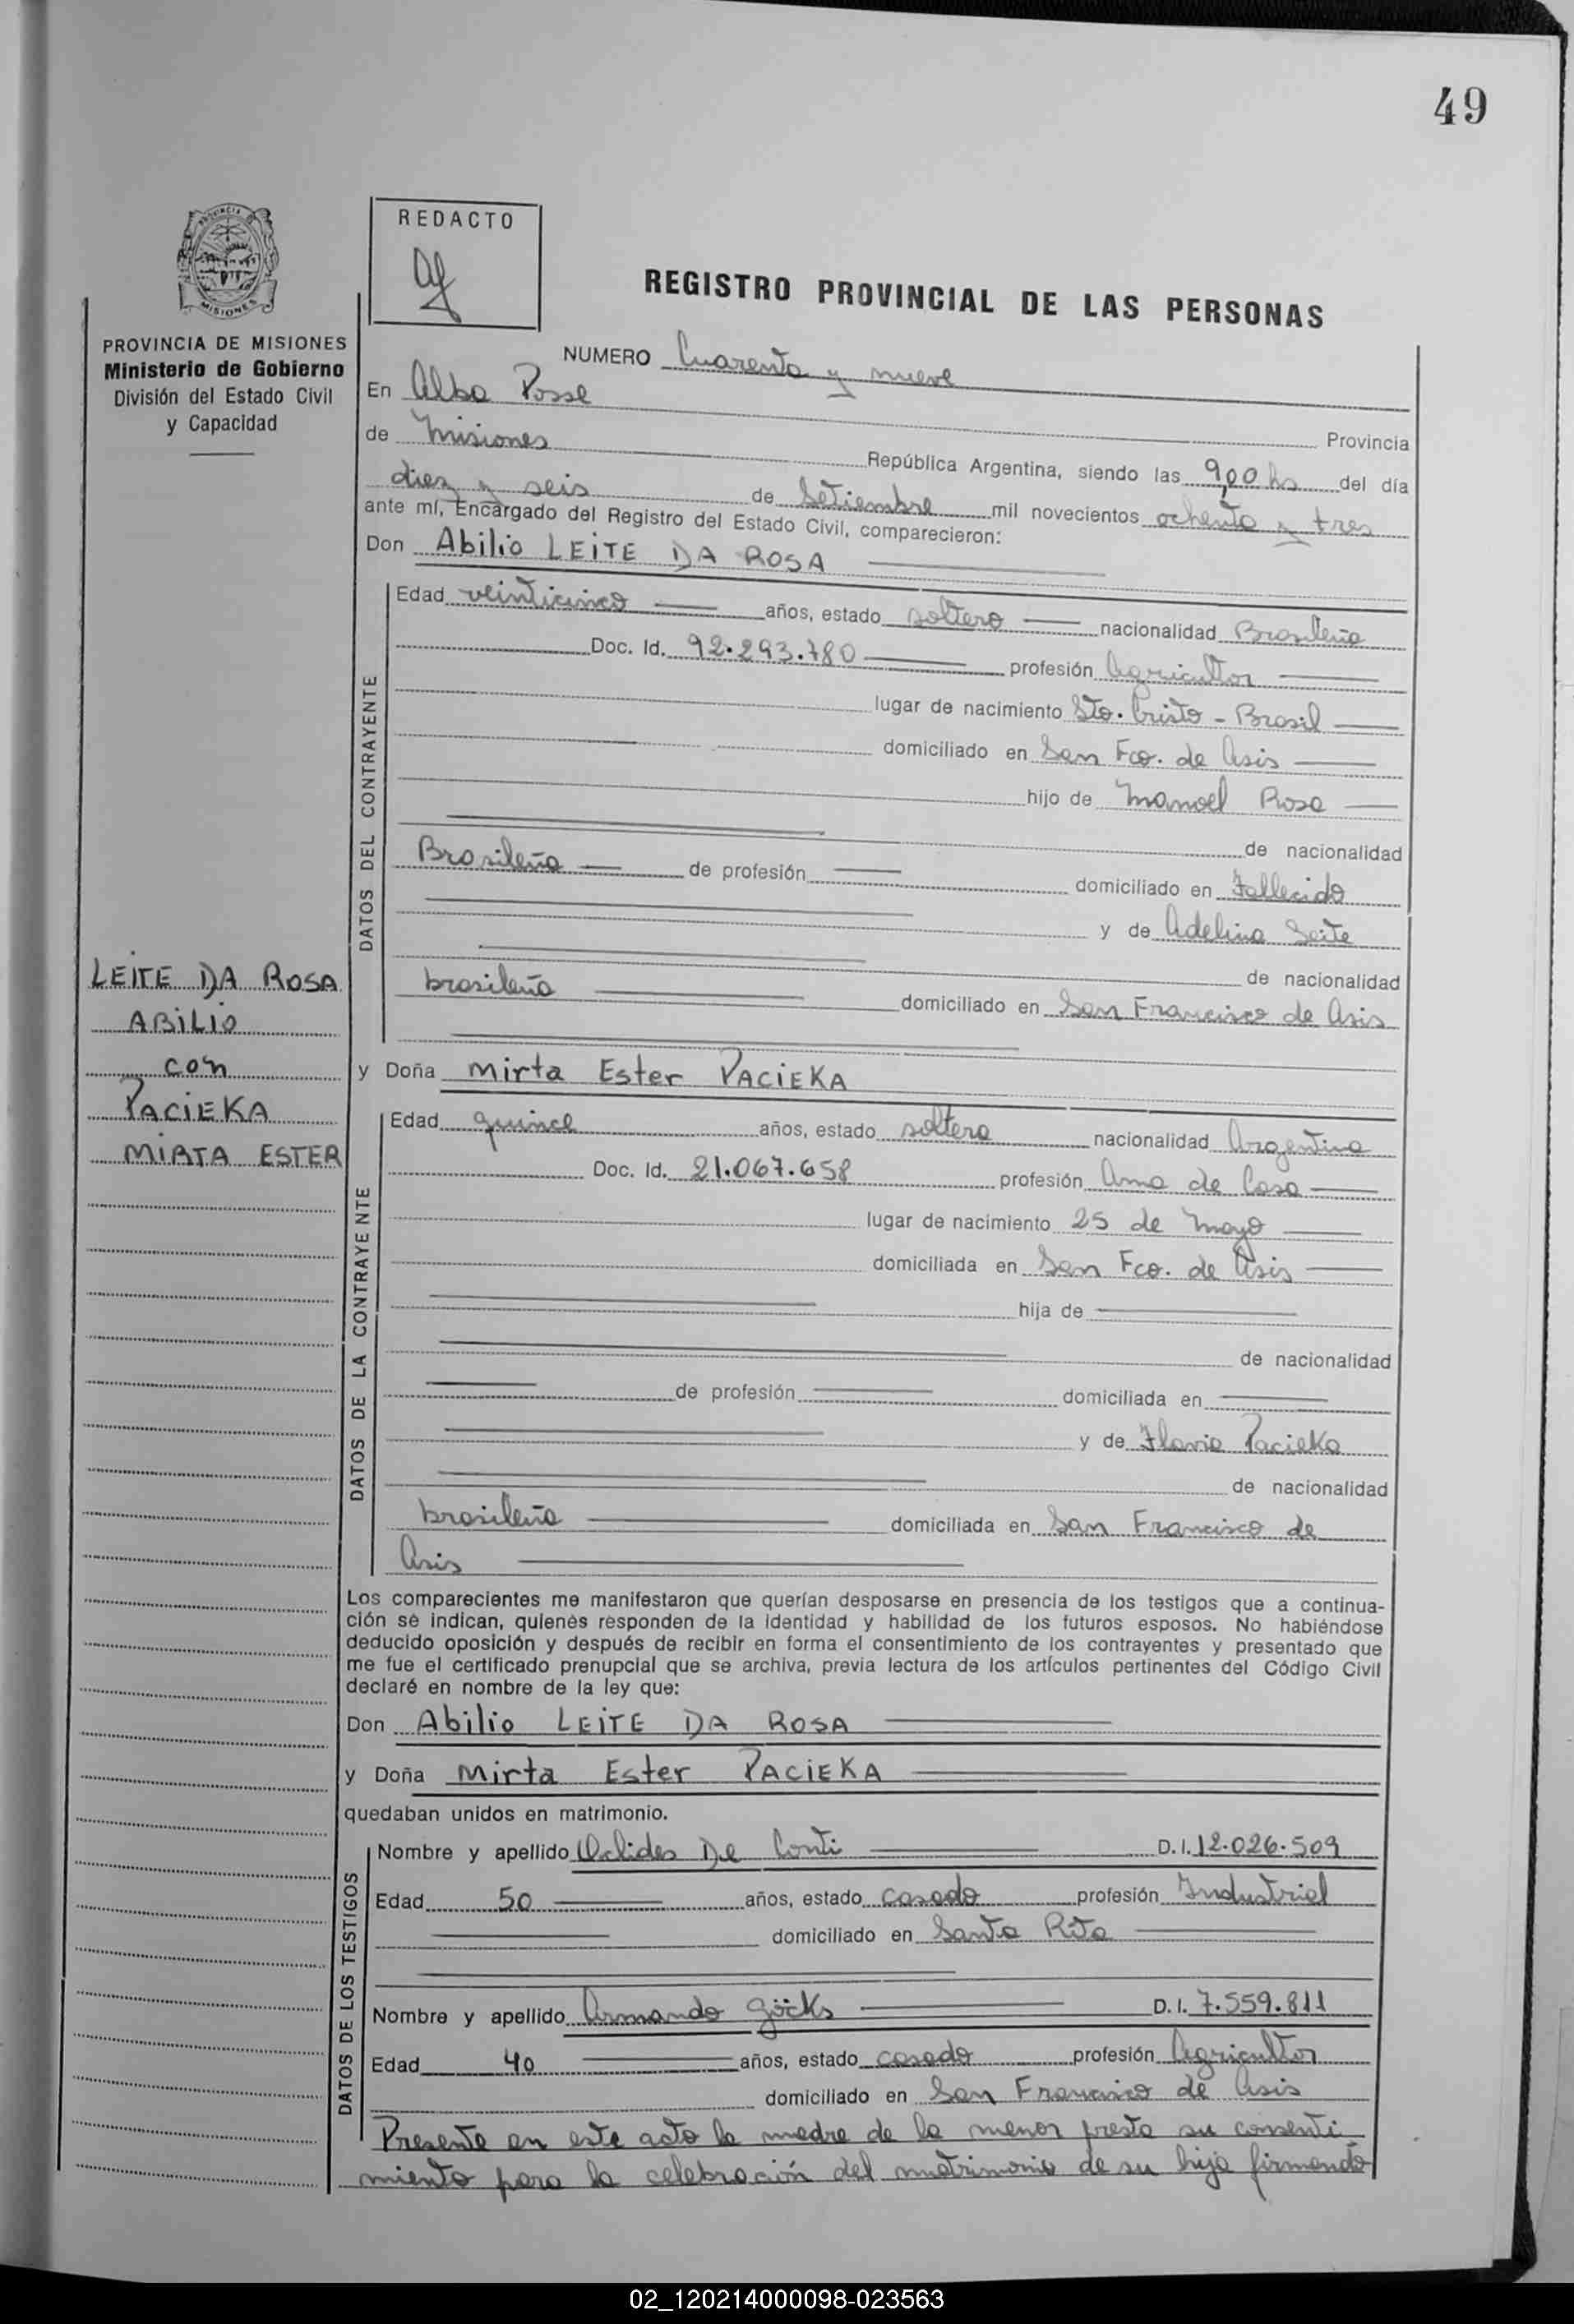 49
REDACTO
PROVINCIA
MISIONES
REGISTRO PROVINCIAL DE LAS PERSONAS
PROVINCIA DE MISIONES
Ministerio de Gobierno
División del Estado Civil
y Capacidad
NUMERO Cuarenta y nueve
En Alba Posse Provincia
de Misiones República Argentina, siendo las 9,00 hs del día
diez y seis de Setiembre mil novecientos ochenta y tres
ante mí, Encargado del Registro del Estado Civil, comparecieron:
Don Abilio LEITE DA ROSA
DATOS DEL CONTRAYENTE
Edad veinticinco años, estado soltero nacionalidad Brasileña
Doc. Id. 92.293.780 profesión Agricultor
lugar de nacimiento Sto. Cristo - Brasil
domiciliado en San Fco. de Asis
hijo de Manoel Rosa
de nacionalidad
Brasileña de profesión domiciliado en Fallecido
y de Adelina Leite
de nacionalidad
brasileña domiciliado en San Francisco de Asis
LEITE DA ROSA
ABILIO
con
PACIEKA
MIRTA ESTER
y Doña Mirta Ester PACIEKA
DATOS DE LA CONTRAYENTE
Edad quince años, estado soltera nacionalidad Argentina
Doc. Id. 21.067.658 profesión Ama de Casa
lugar de nacimiento 25 de Mayo
domiciliada en San Fco. de Asis
hija de
de nacionalidad
de profesión domiciliada en
y de Flavia Pacieka
de nacionalidad
brasileña domiciliada en San Francisco de
Asis
Los comparecientes me manifestaron que querían desposarse en presencia de los testigos que a continua-
ción se indican, quienes responden de la identidad y habilidad de los futuros esposos. No habiéndose
deducido oposición y después de recibir en forma el consentimiento de los contrayentes y presentado que
me fue el certificado prenupcial que se archiva, previa lectura de los artículos pertinentes del Código Civil
declaré en nombre de la ley que:
Don Abilio LEITE DA ROSA
y Doña Mirta Ester PACIEKA
quedaban unidos en matrimonio.
DATOS DE LOS TESTIGOS
Nombre y apellido De Conti D.I. 12.026.509
Edad 50 años, estado casado profesión Industrial
domiciliado en Santa Rita
Nombre y apellido Armando Göcks D.I. 7.559.811
Edad 40 años, estado casado profesión Agricultor
domiciliado en San Francisco de Asis
Presente en este acto la madre de la menor presta su consenti
miento para la celebración del matrimonio de su hija firmando
02_120214000098-023563